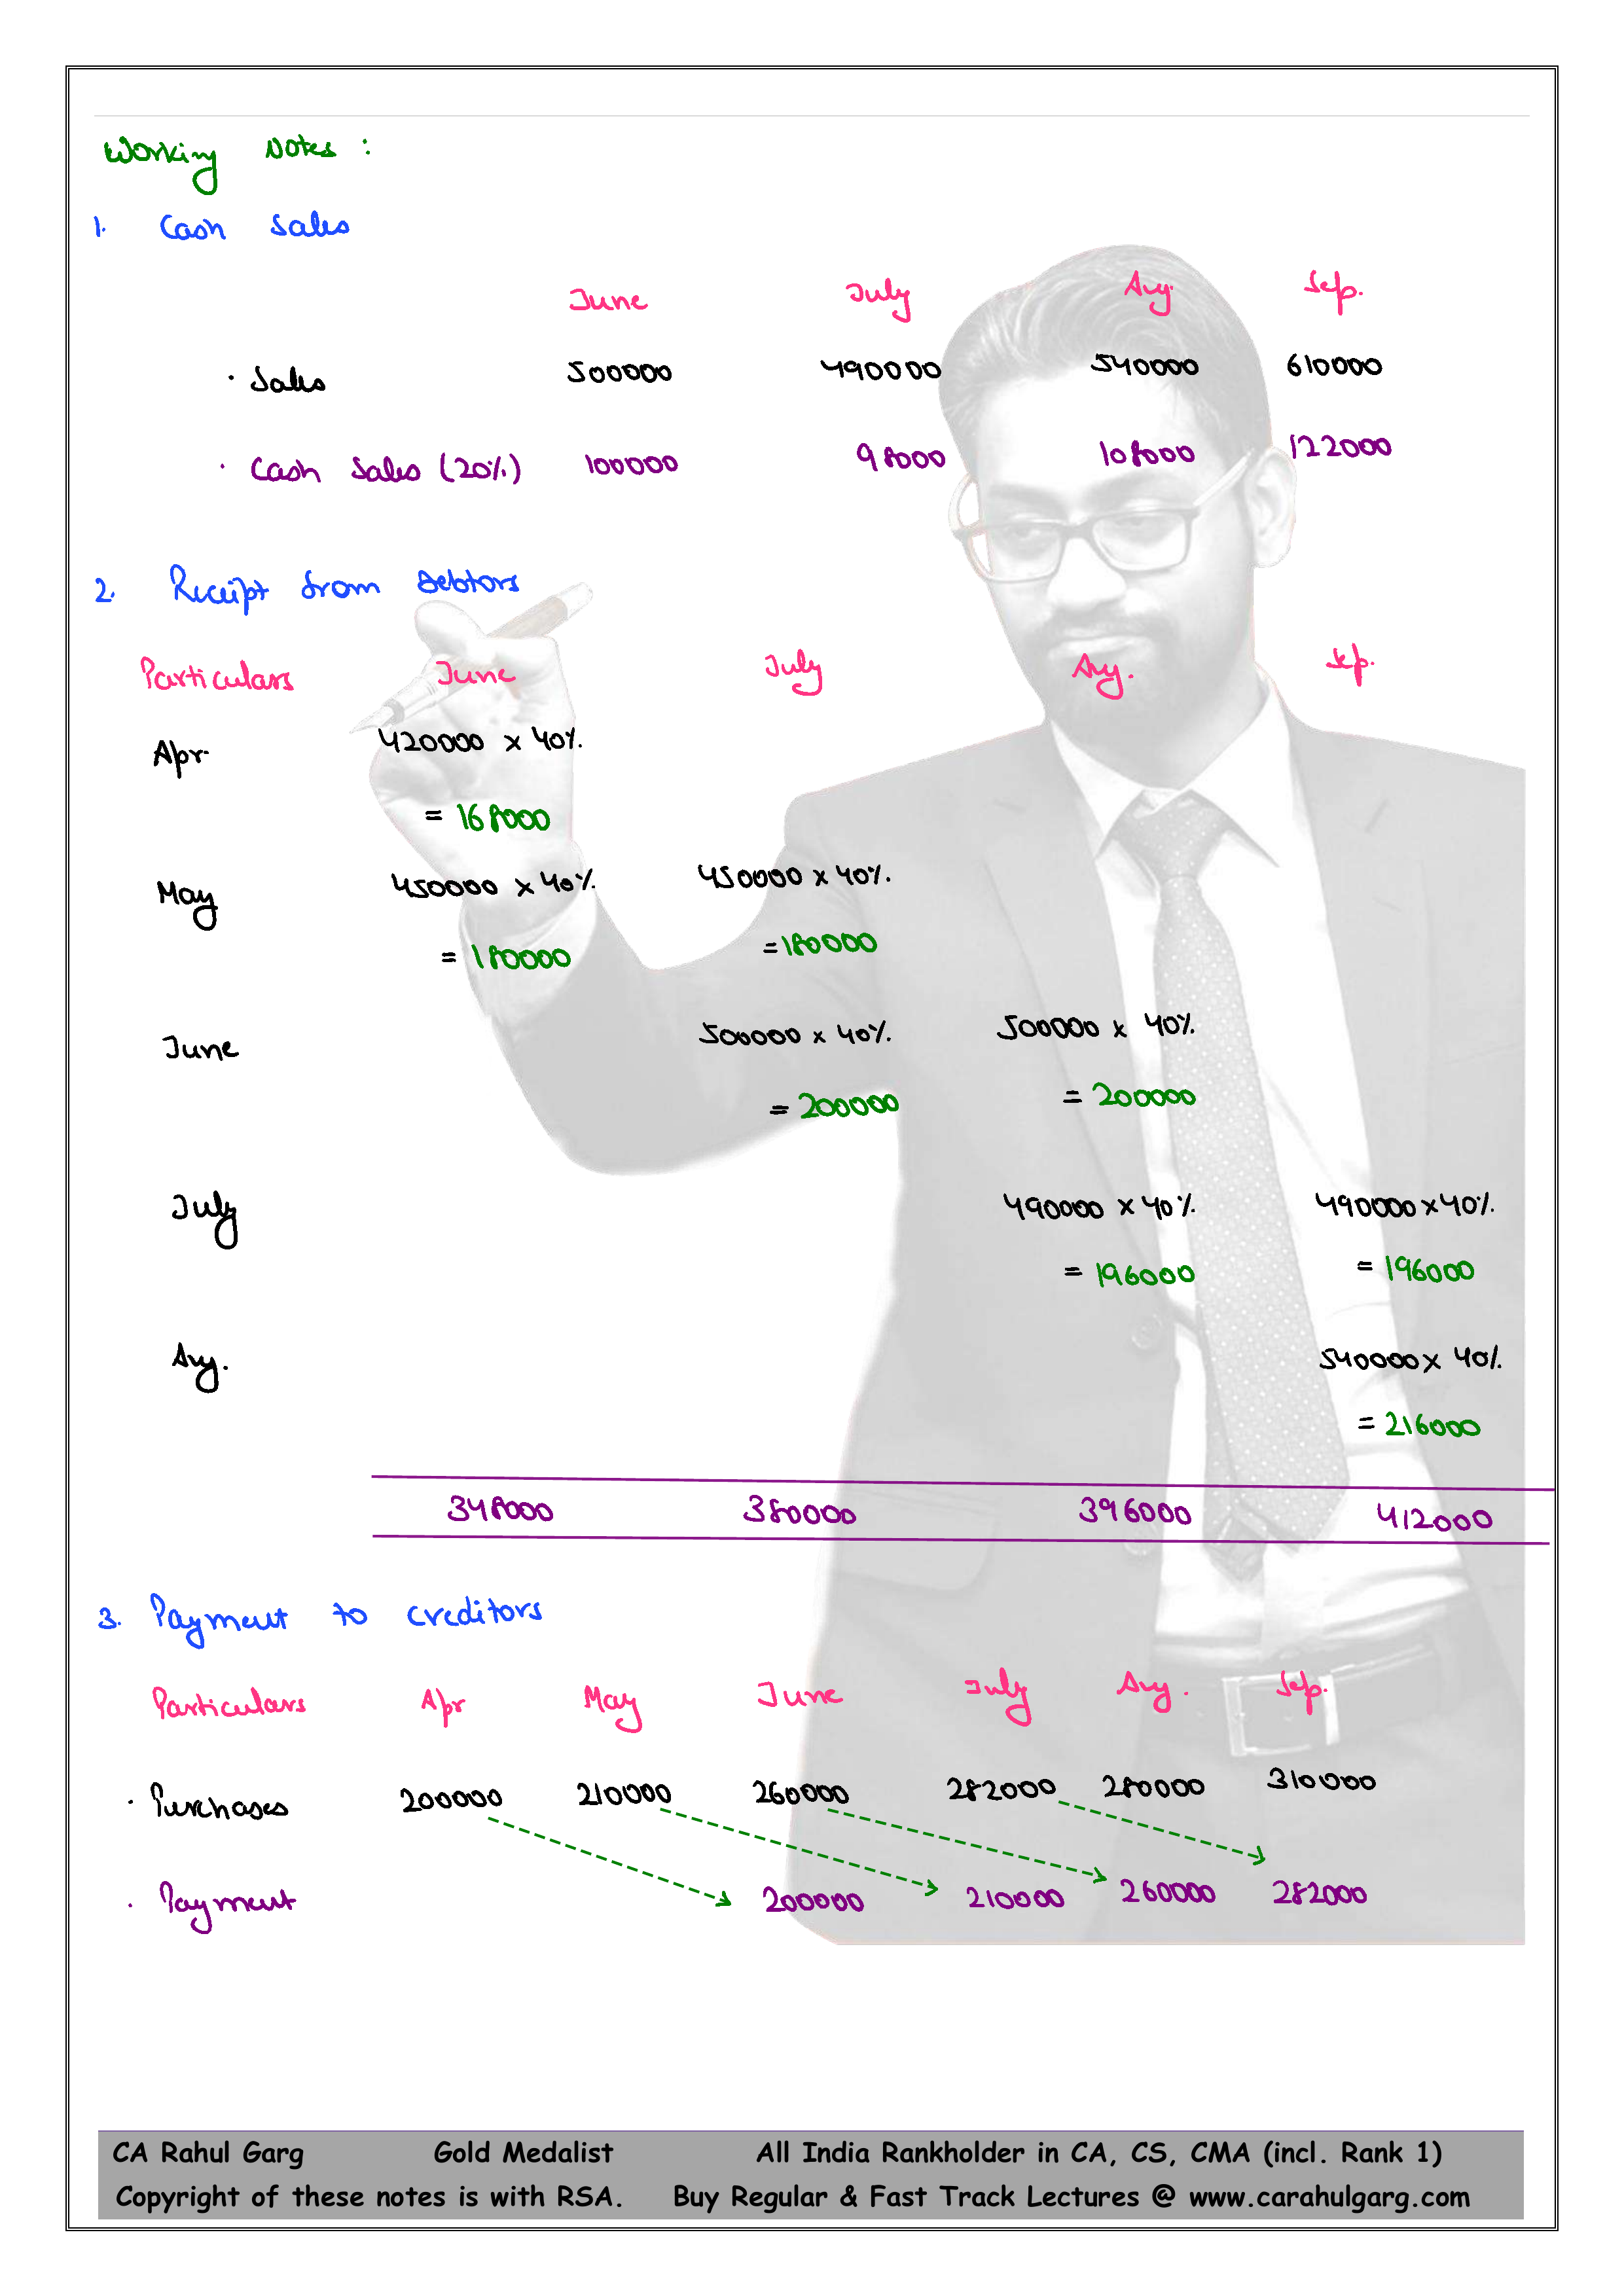 Working Notes :
1. Cash Sales
June July Aug. Sep.
· Sales 500000 490000 540000 610000
· Cash Sales (20%) 100000 98000 108000 122000
2. Receipt from Debtors
Particulars June July Aug. Sep.
Apr. 420000 x 40%
= 168000
May 450000 x 40% 450000 x 40%
= 180000 = 180000
June 500000 x 40% 500000 x 40%
= 200000 = 200000
July 490000 x 40% 490000 x 40%
= 196000 = 196000
Aug. 540000 x 40%
= 216000
348000 380000 396000 412000
3. Payment to creditors
Particulars Apr May June July Aug. Sep.
· Purchases 200000 210000 260000 282000 280000 310000
· Payment 200000 210000 260000 282000
CA Rahul Garg Gold Medalist All India Rankholder in CA, CS, CMA (incl. Rank 1)
Copyright of these notes is with RSA. Buy Regular & Fast Track Lectures @ www.carahulgarg.com